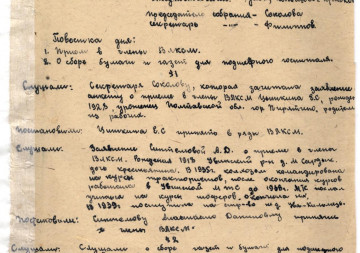 председатель собрания - Соколова
секретарь - Филиппов
Повестка дня:
I. Прием в члены ВЛКСМ.
II. О сборе бумаги и газет для подшефного госпиталя.
§1
Слушали: Секретаря Соколову, которая зачитала заявление
анкету о приеме в члены ВЛКСМ Е.С, рождения
1923, уроженец Полтавской обл. гор Пирятино, родители
из рабочих.
Постановили: Е.С принять в ряды ВЛКСМ.
Слушали: Заявление А.Д. о приеме в члены
ВЛКСМ. Рождения 1918 Увинский р-н д.
кого крестьянина. В 1935г. колхозом командирована
на курсы трактористов, после окончания курсов
работала в Увинской МТС до 1938г.
на курсы шоферов, окончила их
в 1939г. поступила на
Постановили: Анастасию Даниловну принять
в члены ВЛКСМ.
§2
Слушали: Слушали о сборе газет и бумаги для подшефного